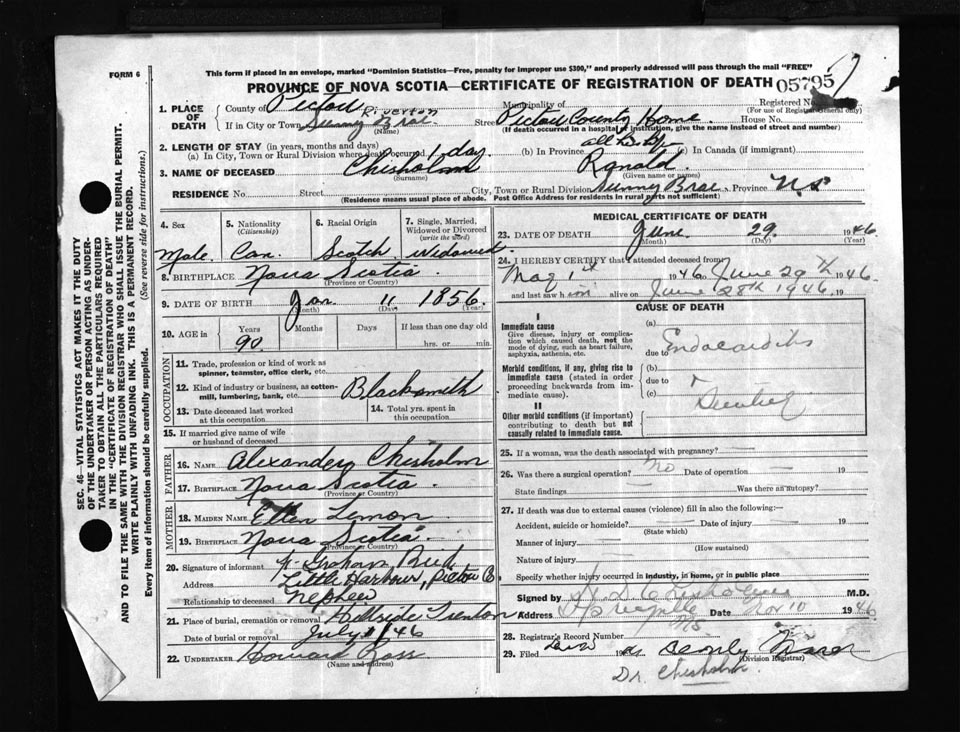 FORM 6
This form if placed in an envelope, marked "Dominion Statistics—Free, penalty for improper use $300," and properly addressed will pass through the mail "FREE"
PROVINCE OF NOVA SCOTIA—CERTIFICATE OF REGISTRATION OF DEATH 05795
1. PLACE OF DEATH County of Pictou Municipality of Registered No.
(For use of Registrar General only)
If in City or Town Riverton Sunny Brae (Name) Street Pictou County Home House No.
(If death occurred in a hospital or institution, give the name instead of street and number)
2. LENGTH OF STAY (in years, months and days)
(a) In City, Town or Rural Division where death occurred 1 day (b) In Province all his life (c) In Canada (if immigrant)
3. NAME OF DECEASED Chisholm (Surname) Ranald (Given name or names)
RESIDENCE No. Street City, Town or Rural Division Sunny Brae Province N.S.
(Residence means usual place of abode. Post Office Address for residents in rural parts not sufficient)
SEC. 46—VITAL STATISTICS ACT MAKES IT THE DUTY
OF THE UNDERTAKER OR PERSON ACTING AS UNDER-
TAKER TO OBTAIN ALL THE PARTICULARS REQUIRED
IN THE "CERTIFICATE OF REGISTRATION OF DEATH"
AND TO FILE THE SAME WITH THE DIVISION REGISTRAR WHO SHALL ISSUE THE BURIAL PERMIT.
WRITE PLAINLY WITH UNFADING INK. THIS IS A PERMANENT RECORD.
Every item of information should be carefully supplied. (See reverse side for instructions.)
4. Sex 5. Nationality (Citizenship) 6. Racial Origin 7. Single, Married, Widowed or Divorced (write the word)
Male. Can. Scotch Widowed
8. BIRTHPLACE Nova Scotia
(Province or Country)
9. DATE OF BIRTH Jan. 11 1856.
(Month) (Day) (Year)
10. AGE in Years Months Days If less than one day old
90 hrs. or min.
OCCUPATION
11. Trade, profession or kind of work as
spinner, teamster, office clerk, etc.
12. Kind of industry or business, as cotton-
mill, lumbering, bank, etc. Blacksmith
13. Date deceased last worked
at this occupation
14. Total yrs. spent in
this occupation
15. If married give name of wife
or husband of deceased
FATHER
16. NAME Alexander Chisholm
17. BIRTHPLACE Nova Scotia
(Province or Country)
MOTHER
18. MAIDEN NAME Ellen Lemon
19. BIRTHPLACE Nova Scotia
(Province or Country)
20. Signature of informant Graham
Address Little Harbour, Pictou Co
Relationship to deceased Nephew
21. Place of burial, cremation or removal Hillside Trenton
Date of burial or removal July 1/46
22. UNDERTAKER Howard Ross
(Name and address)
MEDICAL CERTIFICATE OF DEATH
23. DATE OF DEATH June 29 1946
(Month) (Day) (Year)
24. I HEREBY CERTIFY that I attended deceased from
May 1st 1946 to June 29th 1946
and last saw him alive on June 28th 1946, 19
CAUSE OF DEATH
I
Immediate cause
Give disease, injury or complica-
tion which caused death, not the
mode of dying, such as heart failure,
asphyxia, asthenia, etc.
(a) Endocarditis
due to
Morbid conditions, if any, giving rise to
immediate cause (stated in order
proceeding backwards from im-
mediate cause).
(b)
due to
(c)
II
Other morbid conditions (if important)
contributing to death but not
causally related to immediate cause.
25. If a woman, was the death associated with pregnancy? —
26. Was there a surgical operation? No Date of operation — 19
State findings — Was there an autopsy? —
27. If death was due to external causes (violence) fill in also the following:—
Accident, suicide or homicide? — Date of injury — 19
(State which)
Manner of injury —
(How sustained)
Nature of injury —
Specify whether injury occurred in industry, in home, or in public place
Signed by M.D.
Address Date Nov 10 1946
NS
28. Registrar's Record Number
29. Filed 19
(Division Registrar)
Dr. Chisholm